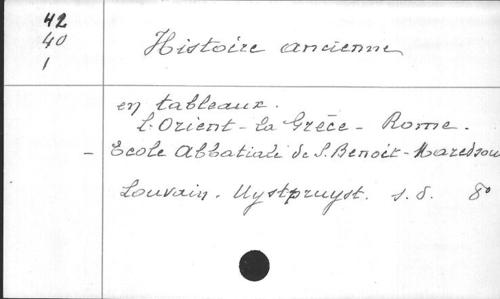 42
40
1
Histoire ancienne
en tableaux.
L'Orient - la Grèce - Rome.
- Ecole Abbatiale de S. Benoit - Maredsou
Louvain. Uystpruyst. s. d. 8°